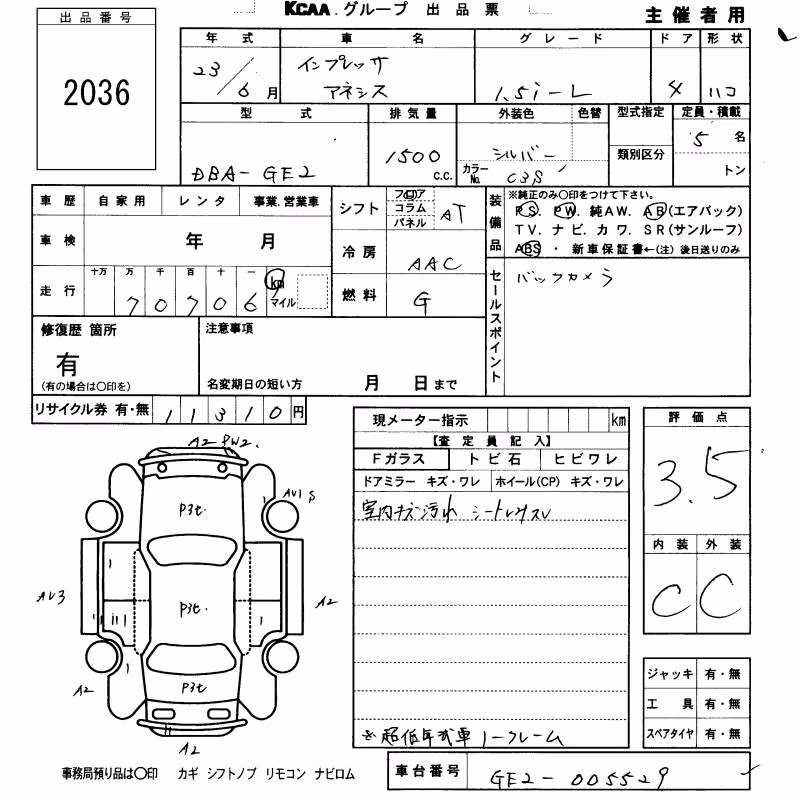 KCAA.グループ 出品票
主催者用
出品番号
2036
年式 車名 グレード ドア 形状
23/6月 インプレッサ アネシス 1.5i-L 4 ハコ
型式 排気量 外装色 色替 型式指定 定員・積載
DBA-GE2 1500 C.C. シルバー カラーNo. C3S 類別区分 5 名 トン
車歴 自家用 レンタ 事業.営業車
シフト フロア コラム パネル AT
装備品 ※純正のみ〇印をつけて下さい。
PS. PW. 純AW. AB(エアバック)
TV. ナビ. カワ. SR(サンルーフ)
ABS ・ 新車保証書←(注)後日送りのみ
車検 年 月
冷房 AAC
走行 十万 万 千 百 十 一
70706 km マイル
燃料 G
セールスポイント バックカメラ
修復歴 箇所
有
(有の場合は〇印を)
注意事項
名変期日の短い方 月 日まで
リサイクル券 有・無 11310円
現メーター指示 km
【査定員記入】
Fガラス トビ石 ヒビワレ
ドアミラー キズ・ワレ ホイール(CP) キズ・ワレ
室内キズ汚れ
※超低年式車ノークレーム
評価点
3.5
内装 外装
C C
ジャッキ 有・無
工具 有・無
スペアタイヤ 有・無
A2 PW2.
P3t.
AU1 S
AU3
P3t.
A2
A2
P3t
A2
事務局預り品は〇印 カギ シフトノブ リモコン ナビロム
車台番号 GE2-005529